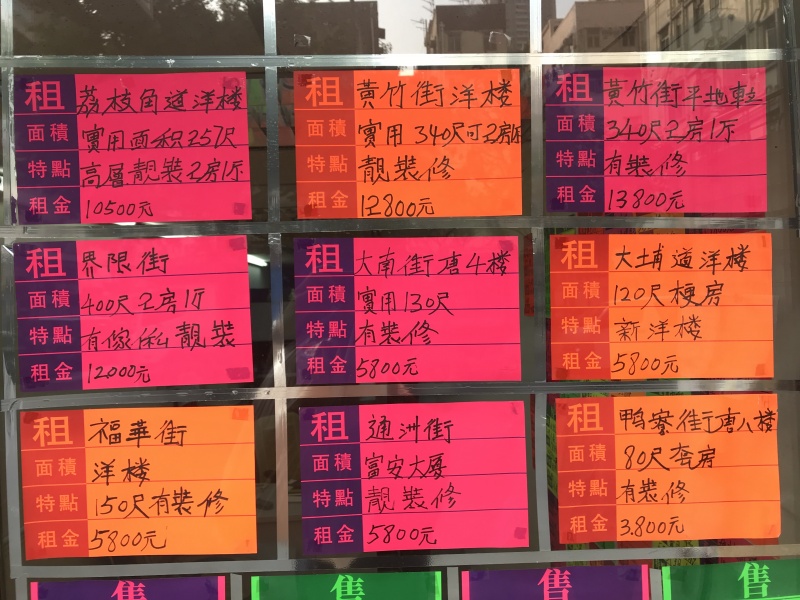 租 荔枝角道洋楼
面積 實用面积257尺
特點 高層靚装2房1厅
租金 10500元
租 黃竹街洋楼
面積 實用340尺可2房
特點 靚裝修
租金 12800元
租 黃竹街平地
面積 340尺2房1厅
特點 有裝修
租金 13800元
租 界限街
面積 400尺2房1厅
特點 有傢俬靚裝
租金 12000元
租 大南街唐4楼
面積 實用130尺
特點 有裝修
租金 5800元
租 大埔道洋楼
面積 120尺梗房
特點 新洋楼
租金 5800元
租 福華街
面積 洋楼
特點 150尺有裝修
租金 5800元
租 通洲街
面積 富安大厦
特點 靚裝修
租金 5800元
租 鴨寮街唐八楼
面積 80尺套房
特點 有裝修
租金 3.800元
售
售
售
售